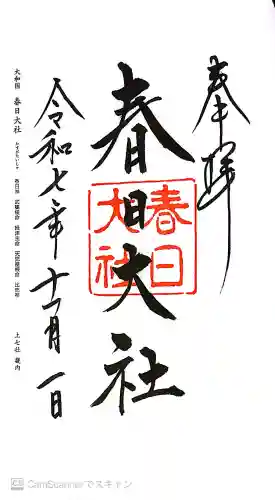 奉拝
春日大社
春日
大社
令和七年十一月一日
大和国 春日大社 かすがたいしゃ
上七社 畿内
CS CamScannerでスキャン